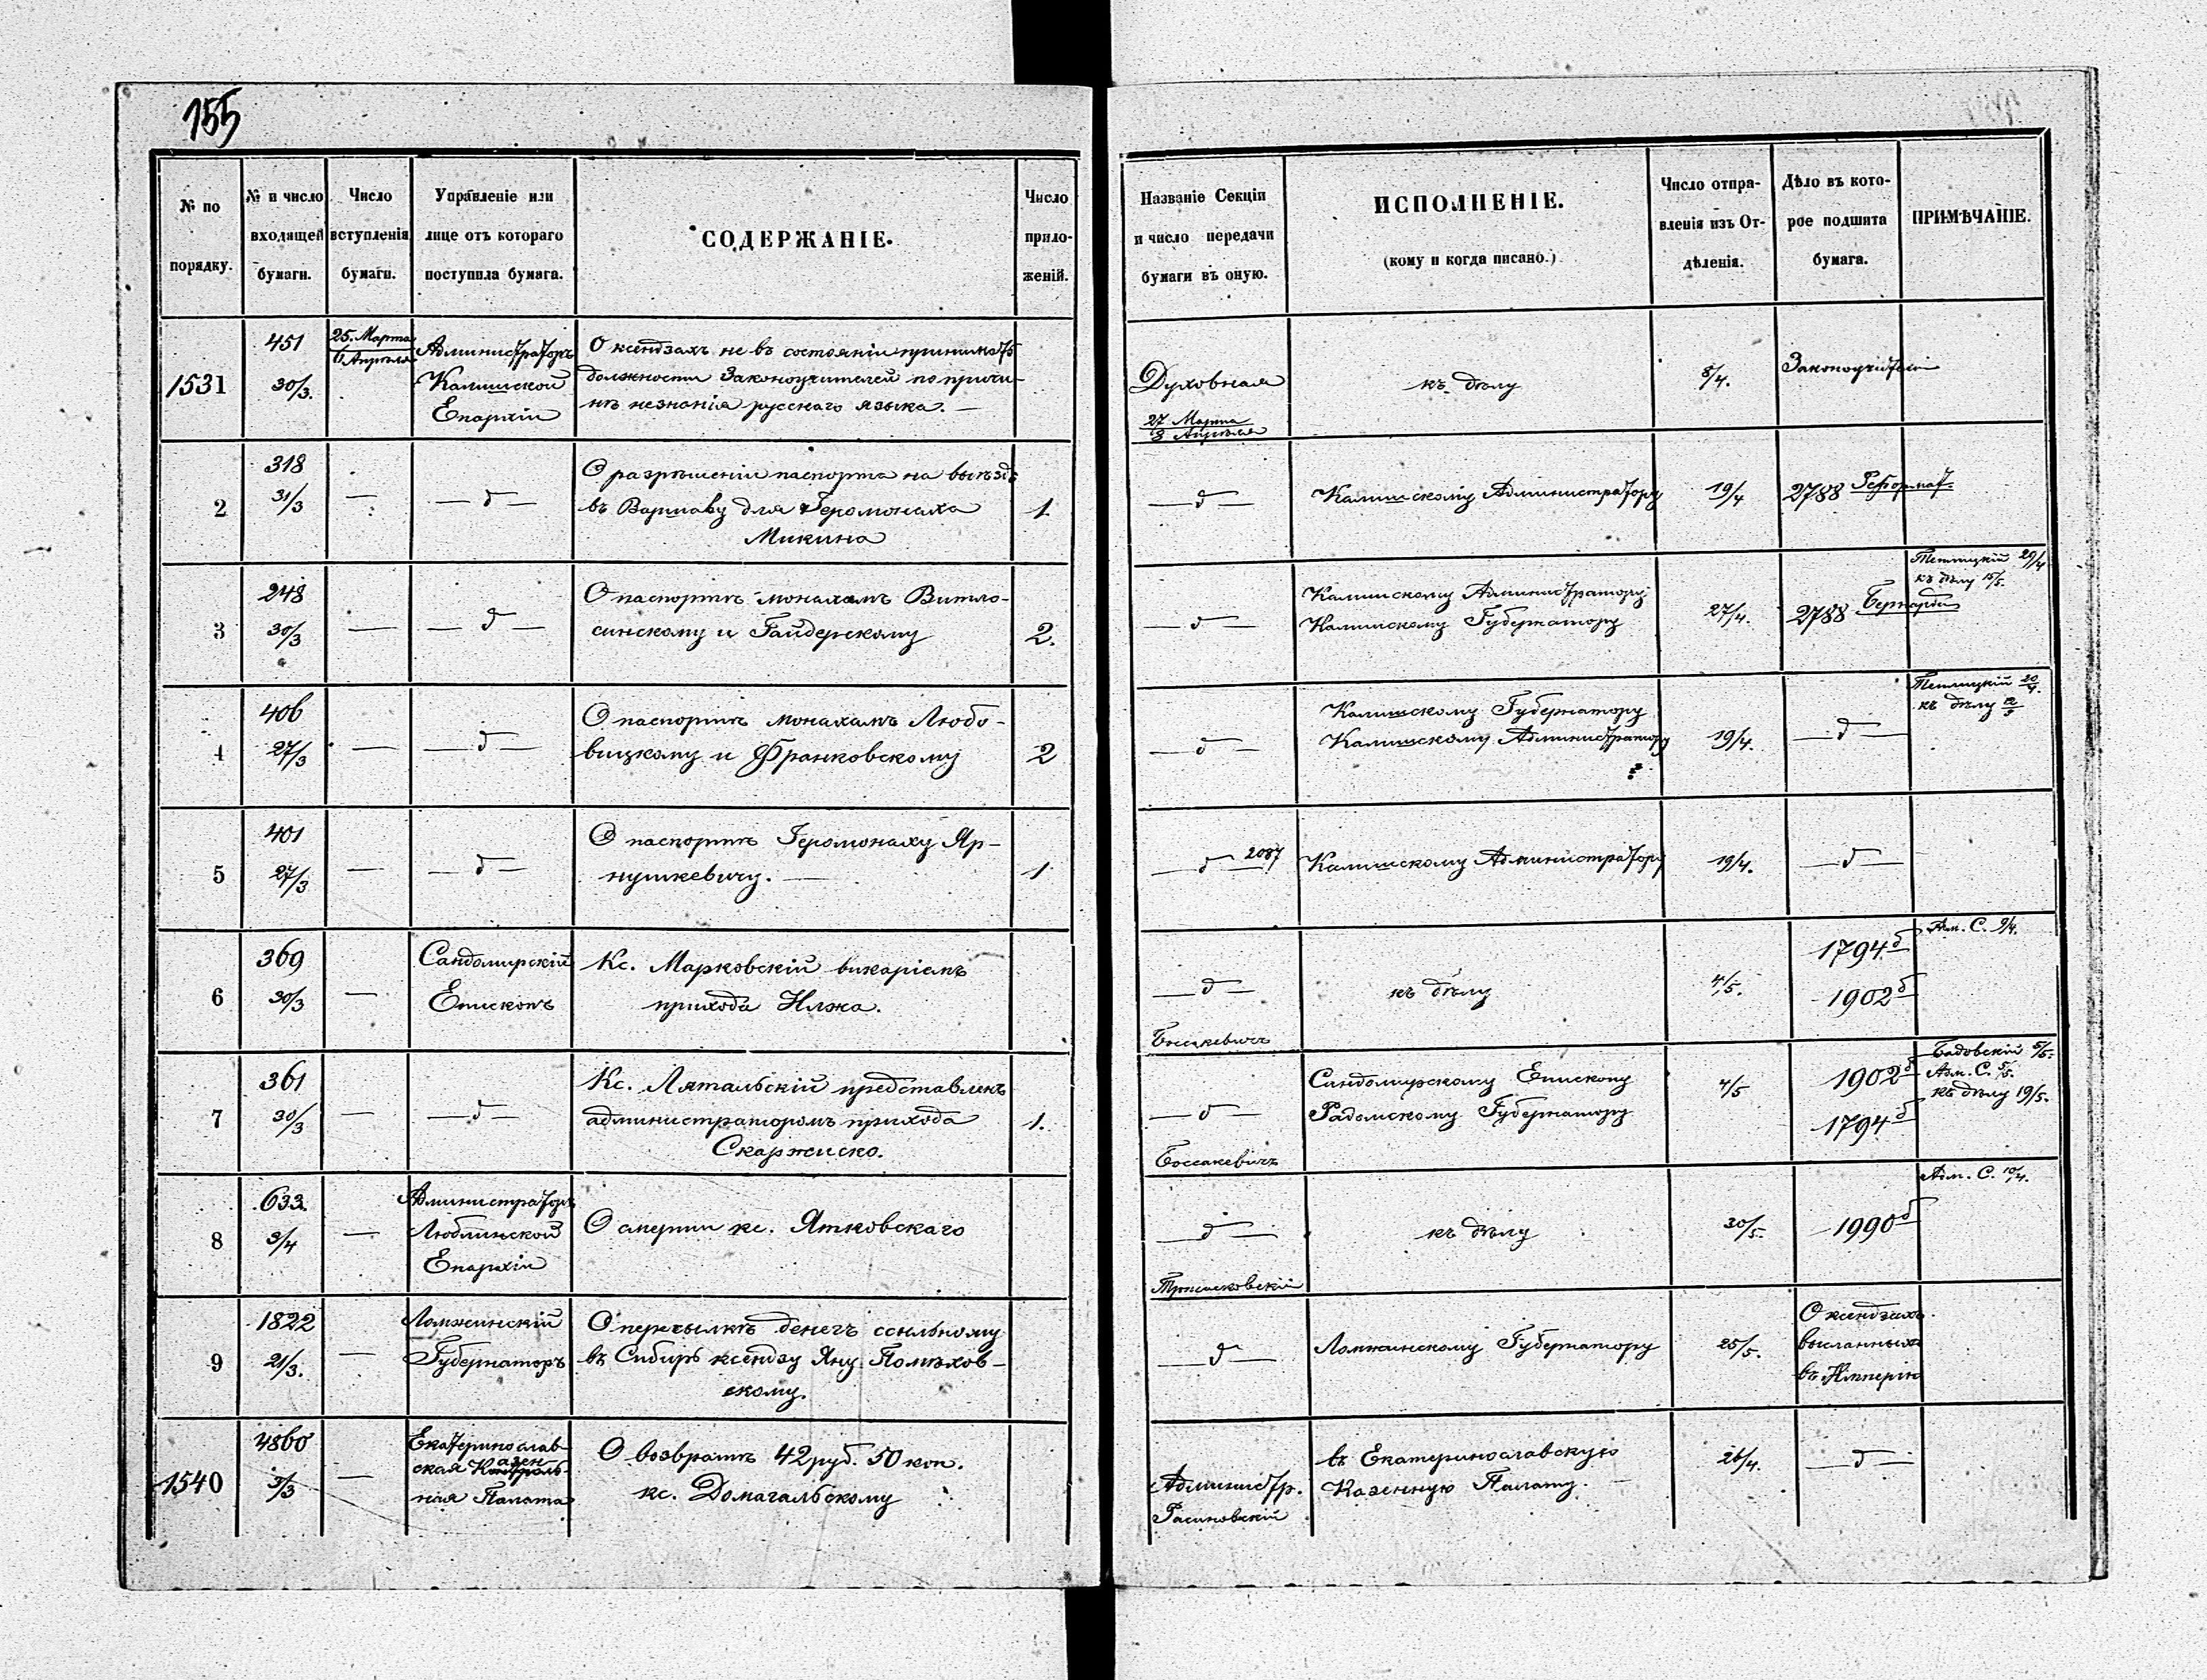 155
№ по порядку.
№ и число входящей бумаги.
Число вступленія бумаги.
Управленіе или лице отъ котораго поступила бумага.
СОДЕРЖАНІЕ.
Число приложеній.
Названіе Секціи и число передачи бумаги въ оную.
ИСПОЛНЕНІЕ.
(кому и когда писано.)
Число отправленія изъ Отдѣленія.
Дѣло въ которое подшита бумага.
ПРИМѢЧАНІЕ.
1531
451
30/3.
25. Марта
6 Апрѣля
Администраторъ
Калишской
Епархіи
О ксендзахъ не въ состояніи принимать
должности Законоучителей по причи-
нѣ незнанія русскаго языка. —
Духовная
27 Марта
8 Апрѣля
къ дѣлу
8/4.
Законоучители
2
318
31/3
—
— д —
О разрѣшеніи паспорта на выѣздъ
въ Варшаву для Іеромонаха
Микина
1
— д —
Калишскому Администратору
19/4
2788 Реформат.
3
248
30/3
—
— д —
О паспортѣ монахамъ Витло-
синскому и Гайдерскому
2.
— д —
Калишскому Администратору
Калишскому Губернатору
27/4.
2788 Бернарди
Теплицкій 29/4
къ дѣлу 15/5.
4
406
27/3
—
— д —
О паспортѣ монахамъ Любо-
вицкому и Франковскому
2
— д —
Калишскому Губернатору
Калишскому Администратору
19/4.
— д —
Теплицкій 20/4.
къ дѣлу 12/5
5
401
27/3
—
— д —
О паспортѣ Іеромонаху Яр-
нушкевичу. —
1
— д — 2087
Калишскому Администратору
19/4.
— д —
6
369
30/3
—
Сандомирскій
Епископъ
Кс. Марковскій викаріемъ
прихода Илжа.
— д —
Боссакевичъ
къ дѣлу
4/5.
1794 б
1902 б
Адм. С. 9/4.
7
361
30/3
—
— д —
Кс. Лятальскій представленъ
администраторомъ прихода
Скаржиско.
1.
— д —
Боссакевичъ
Сандомирскому Епископу
Радомскому Губернатору
4/5
1902 б
1794 б
Бадовскій 5/5.
Адм. С. 5/5.
къ дѣлу 19/5.
8
633.
3/4
—
Администраторъ
Люблинской
Епархіи
О смерти кс. Ятковскаго
— д —
къ дѣлу
30/5.
1990 б
Адм. С. 10/4.
9
1822
21/3.
—
Ломжинскій
Губернаторъ
О пересылкѣ денегъ ссыльному
въ Сибирь ксендзу Яну Помѣхов-
скому.
— д —
Ломжинскому Губернатору
25/5.
О ксендзахъ
высланныхъ
въ Имперію
1540
4860
3/3
—
Екатеринослав-
ская Казен
ная Палата
О возвратѣ 42 руб. 50 коп.
кс. Домагальскому
Администр.
въ Екатеринославскую
Казенную Палату.
26/4.
— д —